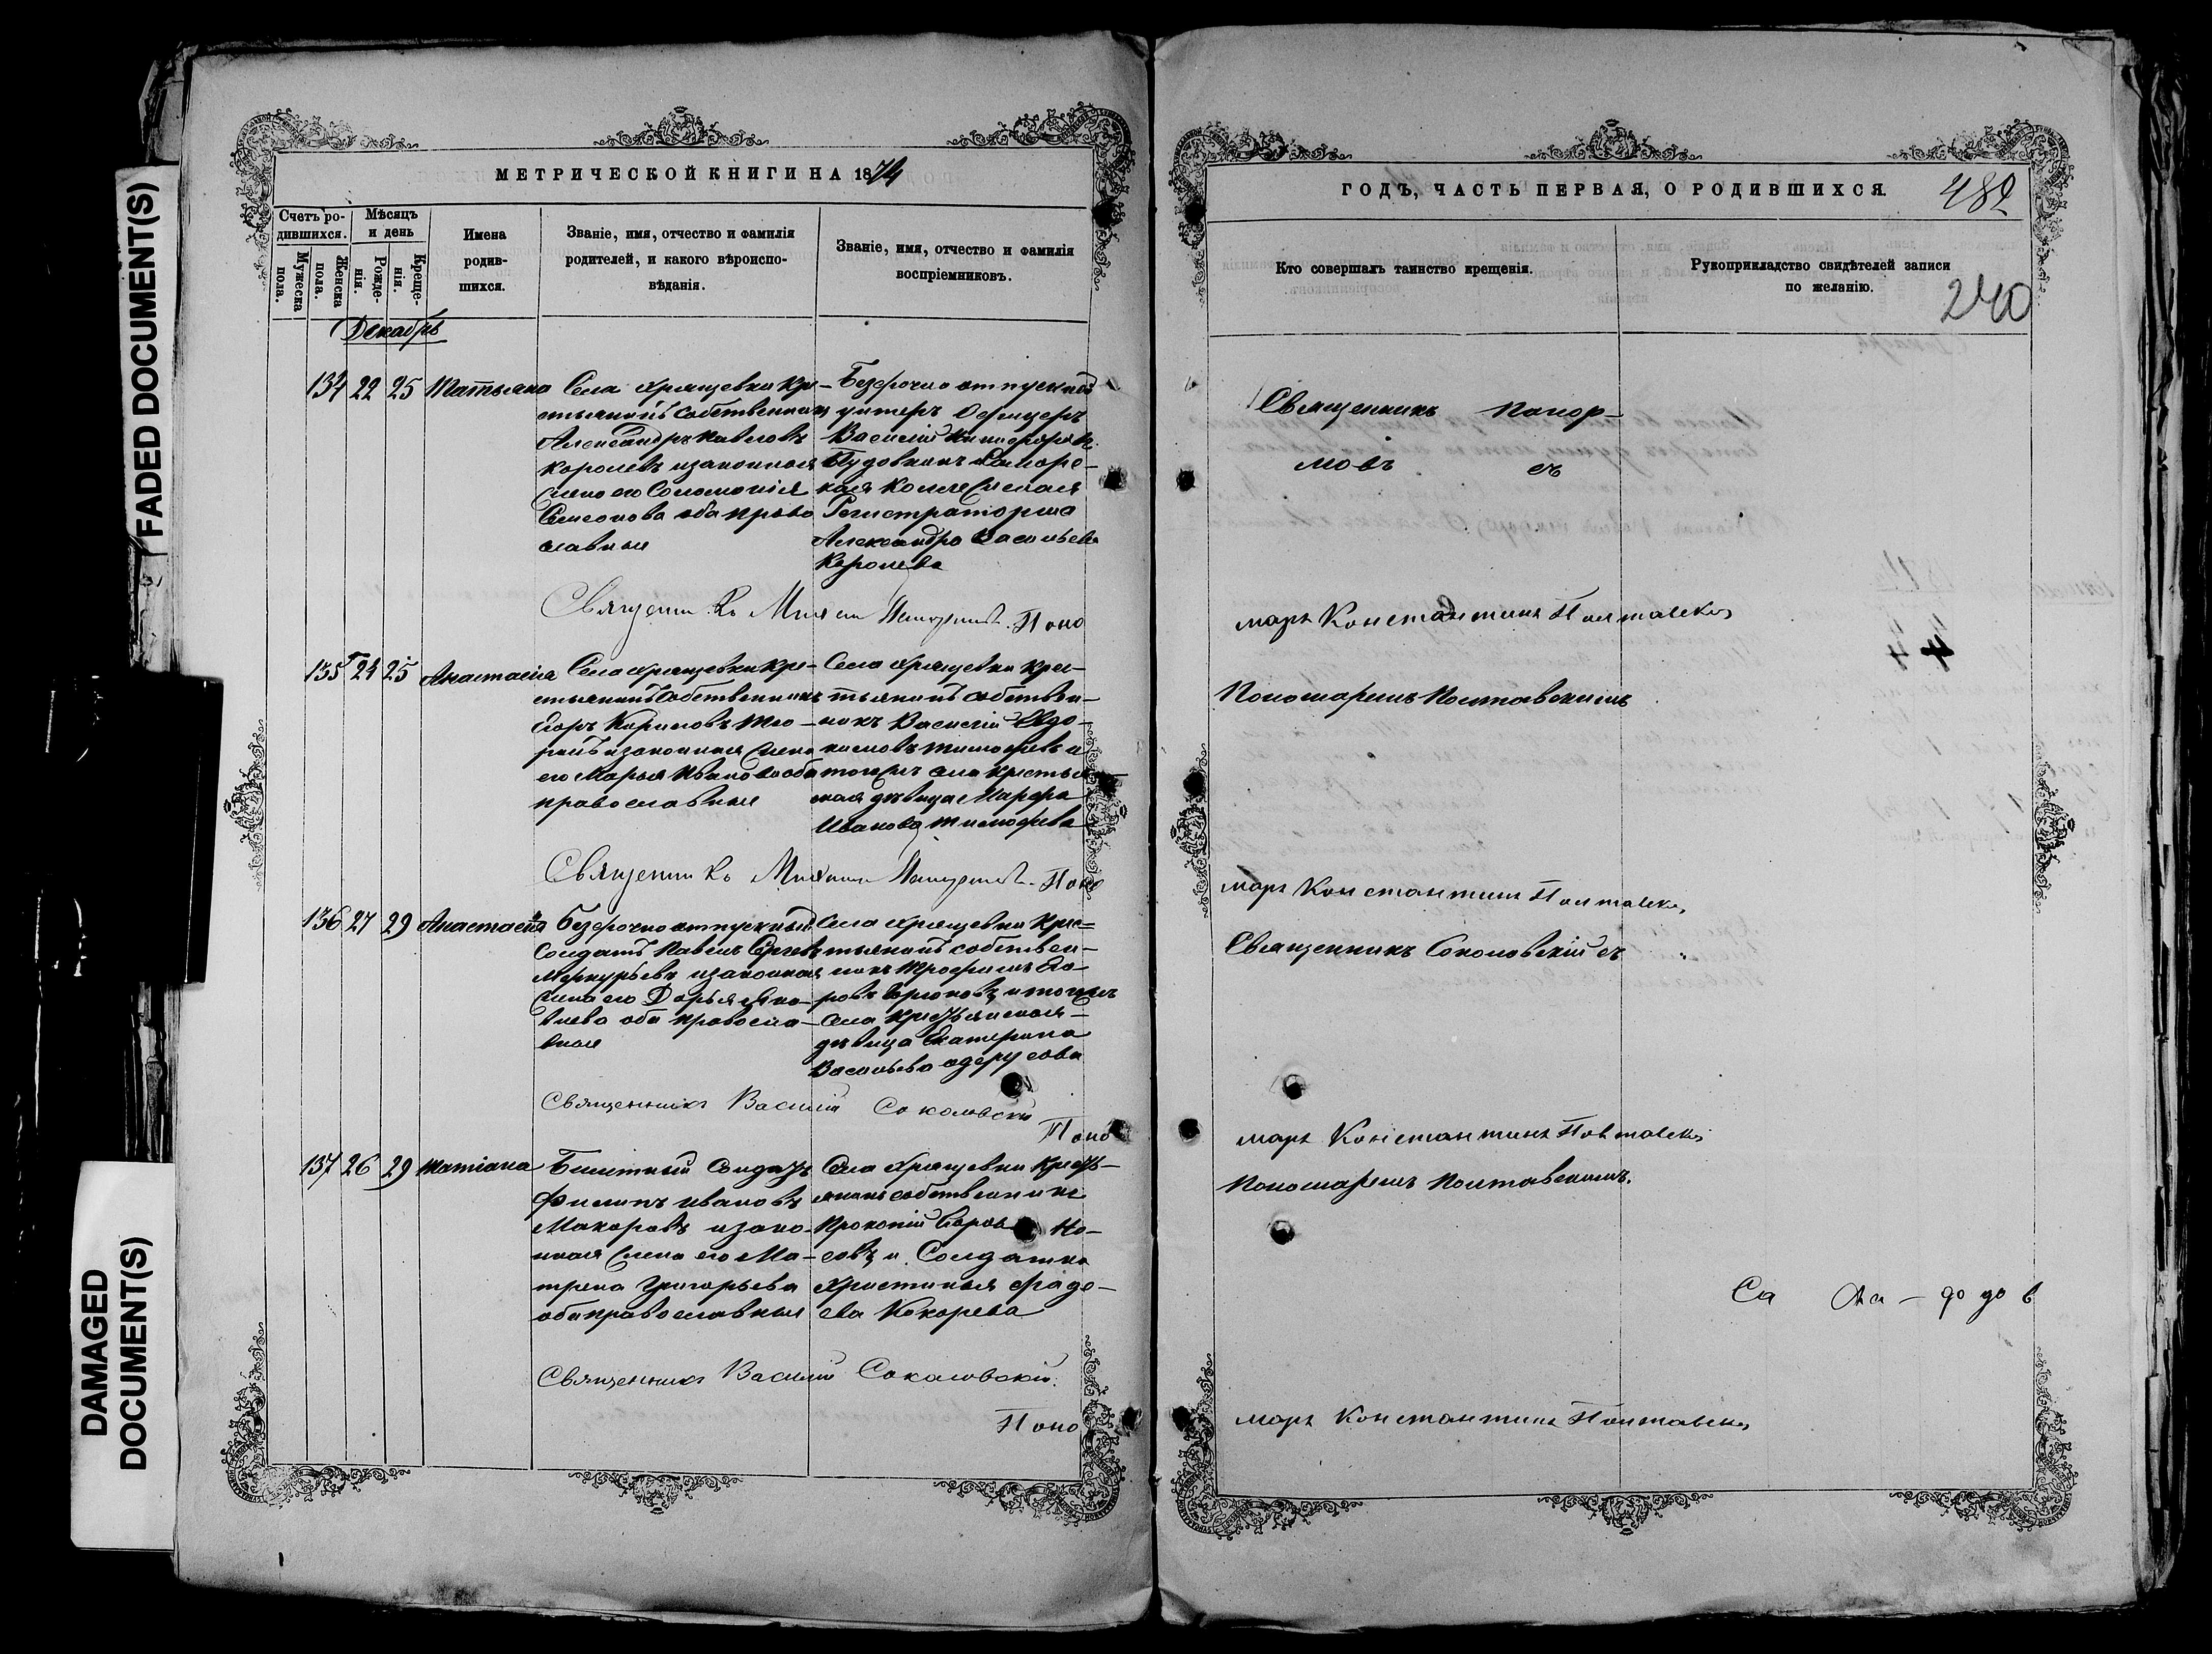 FADED DOCUMENT(S)
DAMAGED
DOCUMENT(S)
МЕТРИЧЕСКОЙ КНИГИ НА 1874
Счетъ ро-
дившихся.
Мужеска
пола.
Женска
пола.
Мѣсяцъ
и день
Рожде-
нія.
Креще-
нія.
Имена
родив-
шихся.
Званіе, имя, отчество и фамилія
родителей, и какого вѣроиспо-
вѣданія.
Званіе, имя, отчество и фамилія
воспріемниковъ.
Декабрь
134 22 25 Татьяна
Села Хрящевки Кре-
стьянинъ собственникъ
Александръ Павловъ
Королевъ изаконная
жена его Соломонія
Симеонова оба право
славные
Безсрочно отпускной
унтеръ Офицеръ
Василій Никифоровъ
Пудовкинъ
Коллежская
Регистраторша
Александра Васильева
Королева
Священникъ Поно
135 24 25 Анастасія
Села Хрящевки Кре-
стьянинъ Собственникъ
Егоръ Кириловъ
изаконная жена
его Марья Иванова оба
православные
Села Хрящевки крес-
тьянинъ собствен-
никъ Василій Евдо-
кимовъ Тимофеевъ и
тогожъ села крестьян
ская дѣвица Марфа
Иванова Тимофеева
Священникъ Поно
136 27 29 Анастасія
Безсрочно отпускный
Солдатъ Павелъ Сергеевъ
Меркурьевъ изаконная
жена его Дарья Яко-
влева оба правосла-
вные
Села Хрящевки Крес=
тьянинъ собствен-
никъ Трофимъ Его
ровъ и тогожъ
села Крестьянская
дѣвица Екатерина
Васильева
Священникъ Василій Соколовскій
Поно
137 26 29 Татіана
Билетный Солдатъ
Филипъ Ивановъ
Макаровъ изако-
нная жена его Ма-
трена Григорьева
оба православные
Села Хрящевки Кресть-
янинъ собственникъ
Прокопій Но-
совъ и Солдатка
Христинья Фаде-
ева Кокорева
Священникъ Василій Соколовскій.
Поно
ГОДЪ, ЧАСТЬ ПЕРВАЯ, О РОДИВШИХСЯ.
482
240
Кто совершалъ таинство крещенія.
Рукоприкладство свидѣтелей записи
по желанію.
Священникъ
съ
марь Константинъ Полтавскій
Пономаремъ Полтавскимъ
марь Константинъ Полтавскій
Священникъ Соколовскій съ
марь Константинъ Полтавскій
Пономаремъ Полтавскимъ.
марь Константинъ Полтавскій